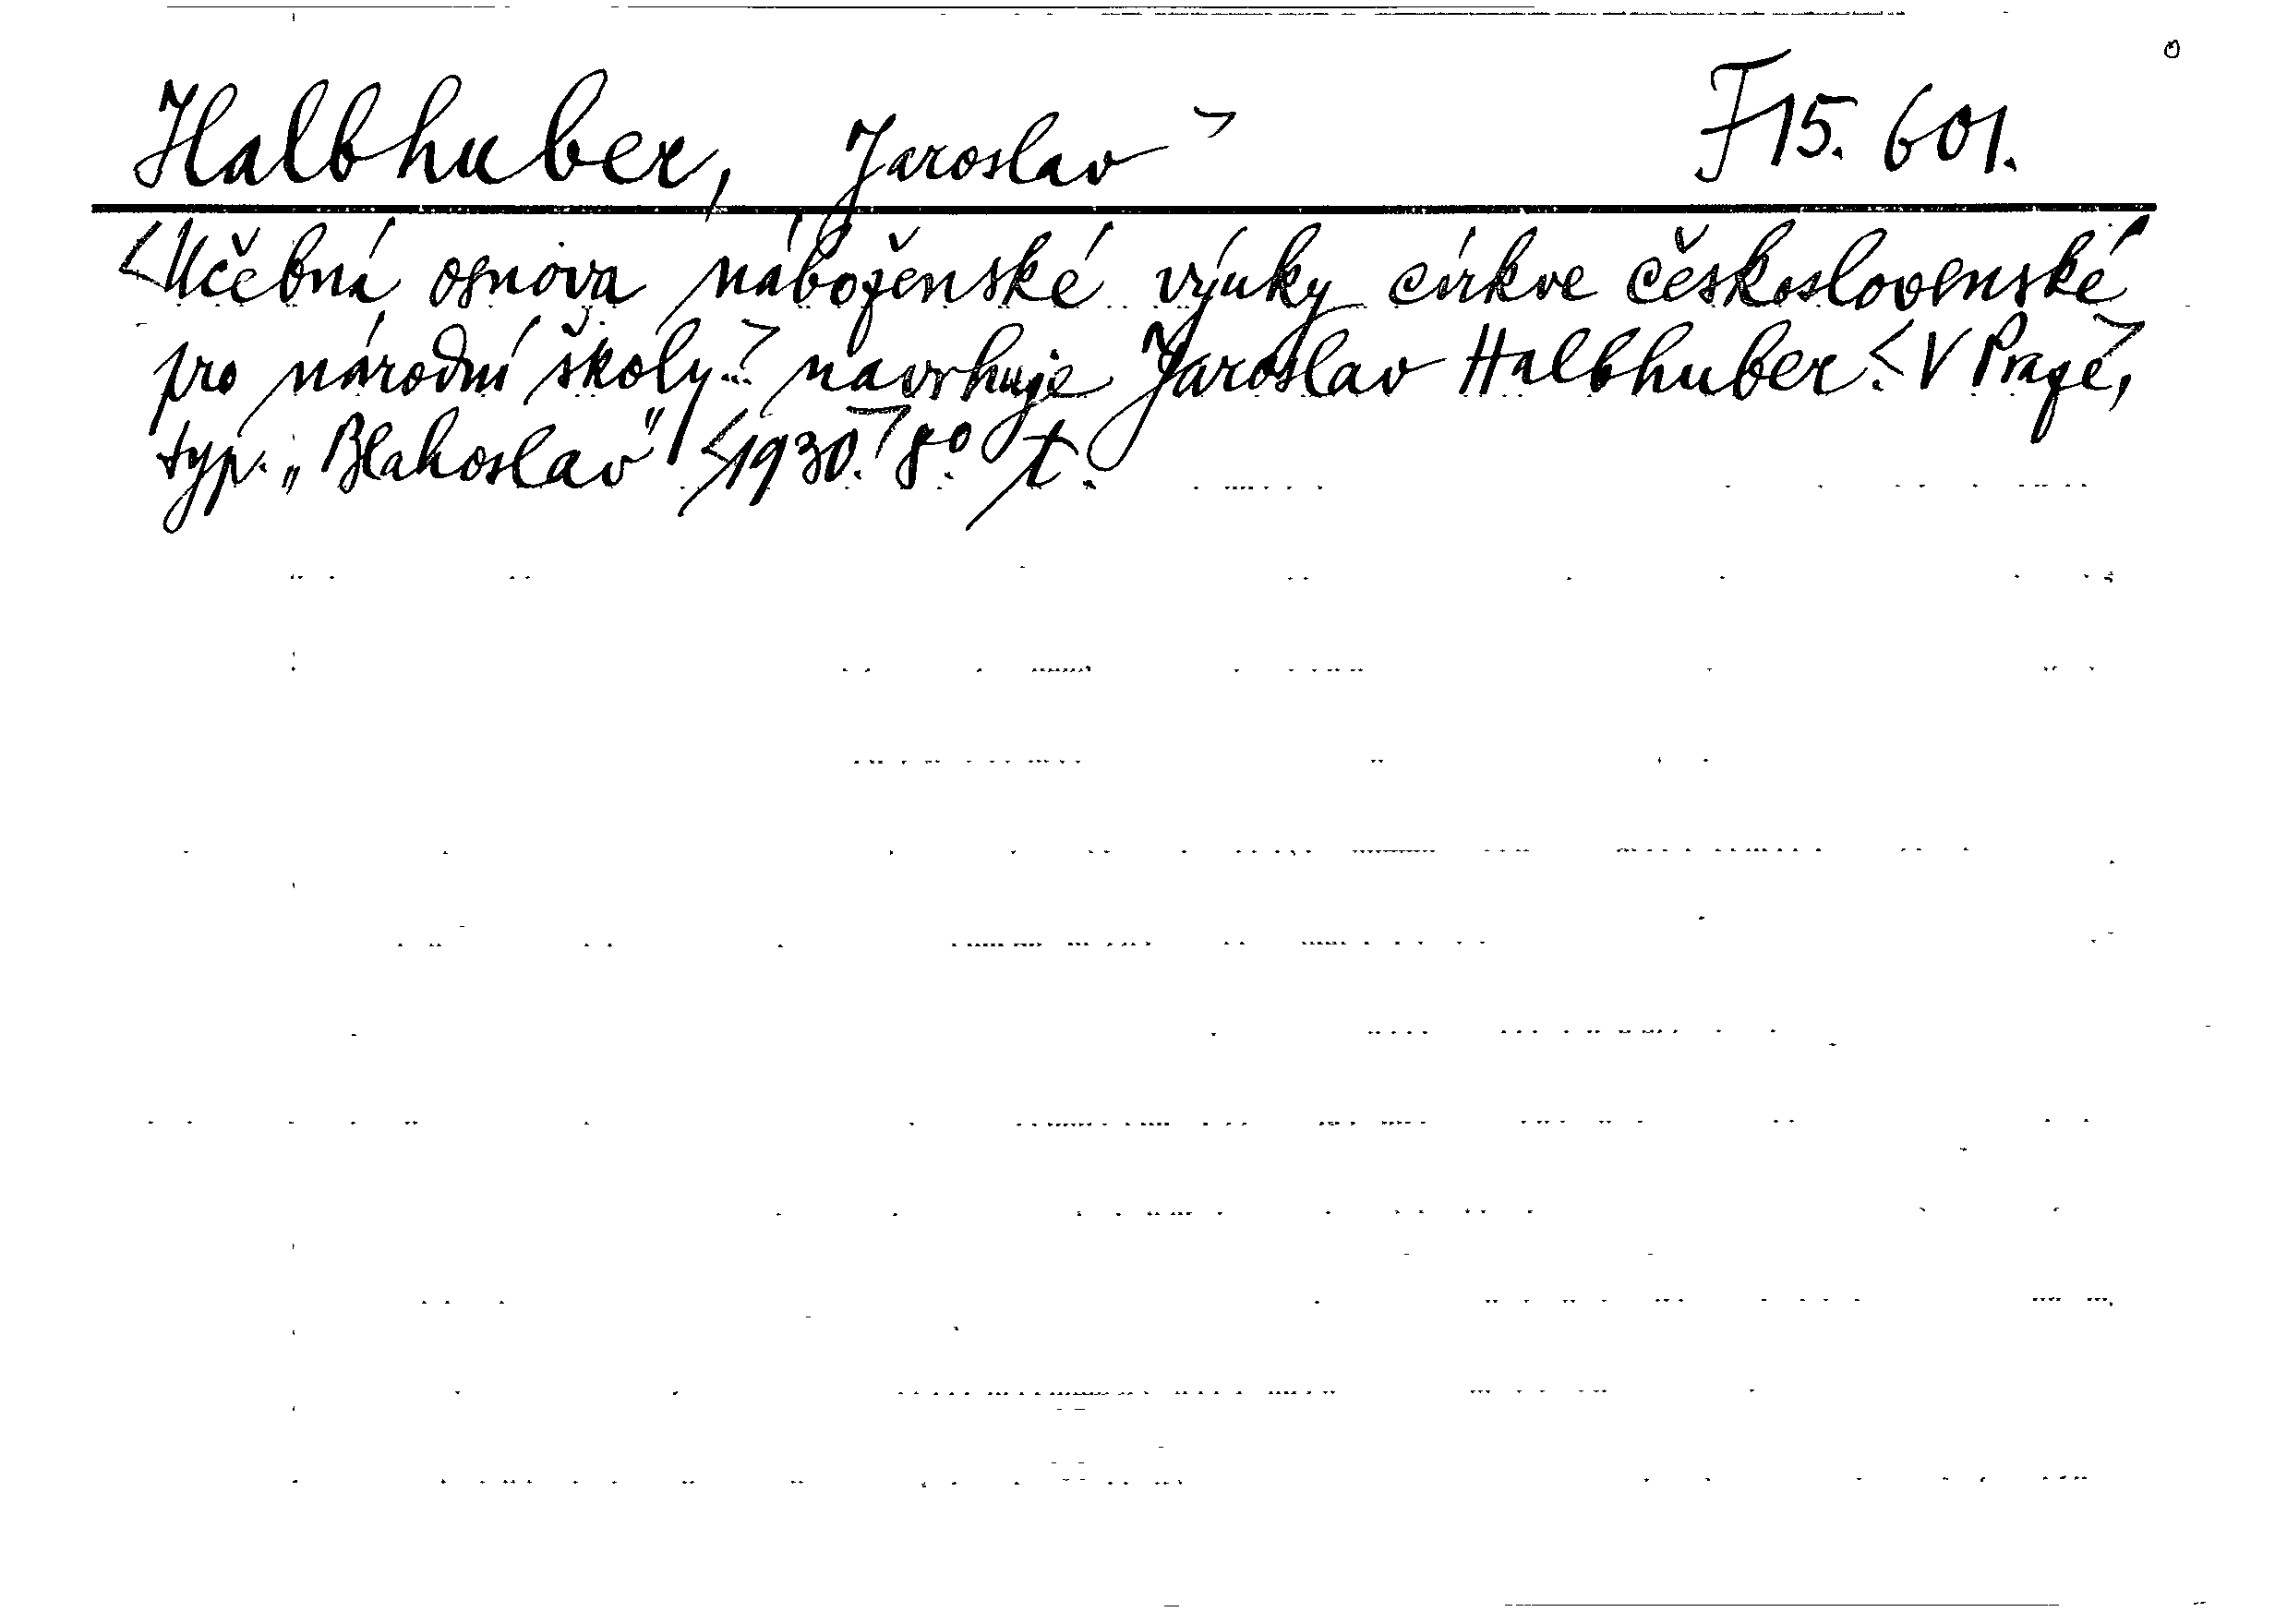 Halbhuber, Jaroslav> F 15. 601.
<Učebná osnova náboženské výuky církve československé
pro národní školy...> navrhuje Jaroslav Halbhuber. <V Praze>,
typ. „Blahoslav" <1930.> 8°. t.